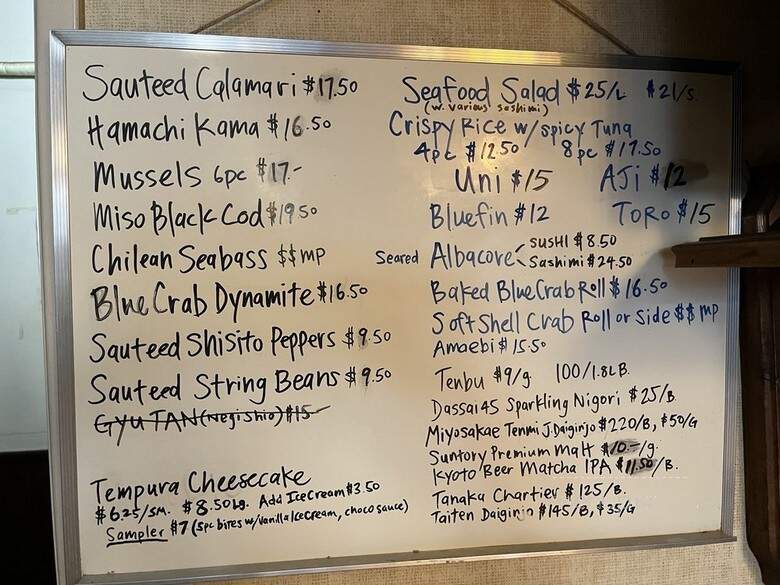 Sauteed Calamari $17.50
Hamachi Kama $16.50
Mussels 6pc $17.-
Miso Black Cod $19.50
Chilean Seabass $$MP
Blue Crab Dynamite $16.50
Sauteed Shisito Peppers $9.50
Sauteed String Beans $9.50
Gyu TAN (Negi Shio) $15
Tempura Cheesecake
$6.25/SM. $8.50Lg. Add Ice Cream $3.50
Sampler $7 (5pc bites w/Vanilla Ice Cream, choco sauce)
Seafood Salad $25/L $21/S
(w. various sashimi)
Crispy Rice w/spicy Tuna
4pc $12.50 8pc $17.50
Uni $15 AJi $12
Bluefin $12 ToRo $15
Seared Albacore SUSHI $8.50
Sashimi $24.50
Baked Blue Crab Roll $16.50
Soft Shell Crab Roll or Side $$ MP
Amaebi $15.50
Tenbu $9/g 100/1.8LB.
Dassai 45 Sparkling Nigori $25/B
Miyosakae Tenmi J.Daiginjo $220/B, $50/G
Suntory Premium Malt $10.-/g.
Kyoto Beer Matcha IPA $11.50/B.
Tanaka Chartier $125/B.
Taiten Daiginjo $145/B, $35/G